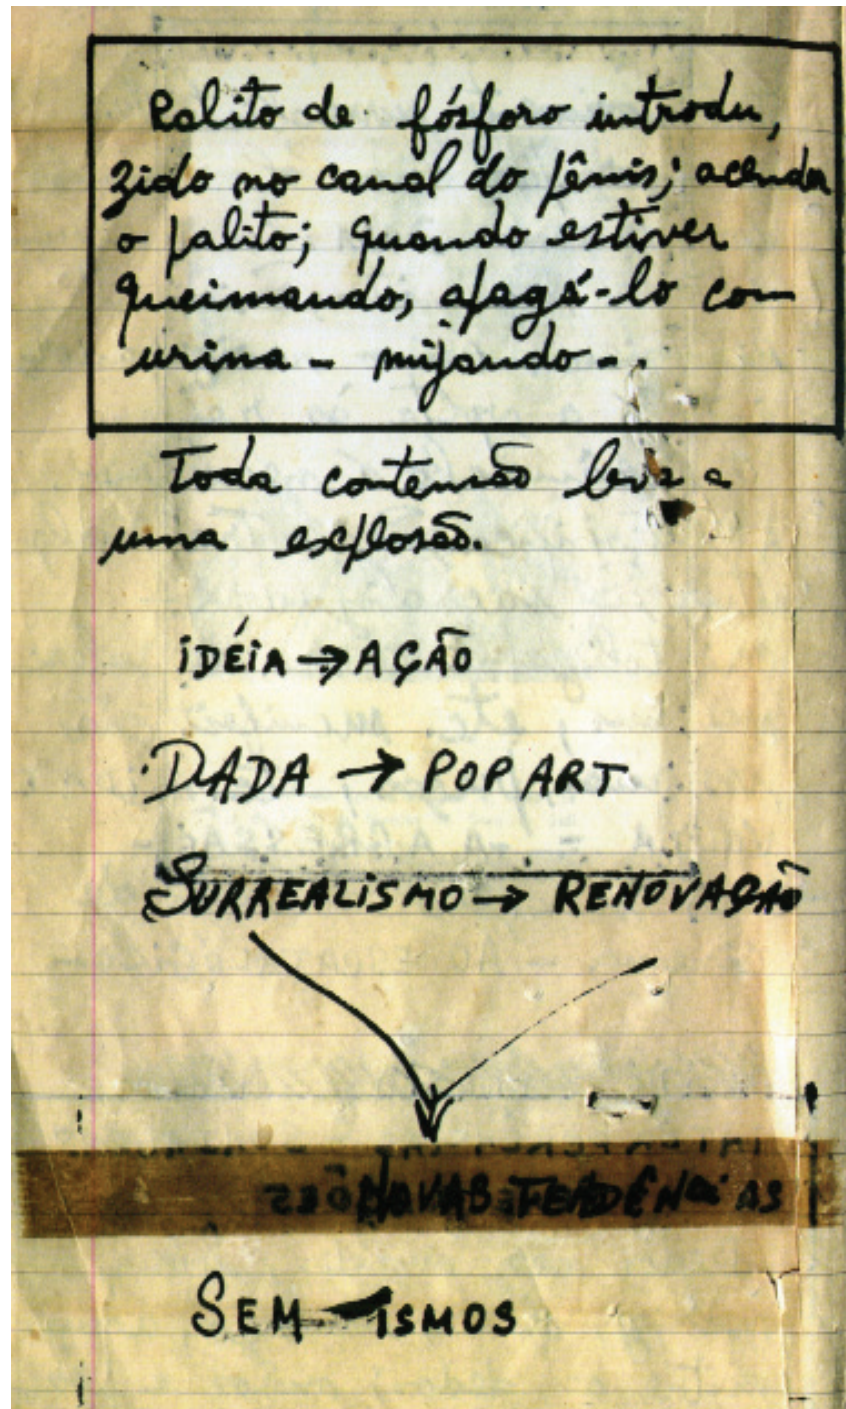 Palito de fósforo introdu,
zido no canal do pênis; acender
o palito; quando estiver
queimando, apagá-lo com
urina - mijando-.
Toda contensão leva a
uma explosão.
iDÉiA → AÇÃO
DADA → POP ART
SURREALiSMO → RENOVAÇÃO
NOVAS TENDÊNCiAS
SEM - iSMOS